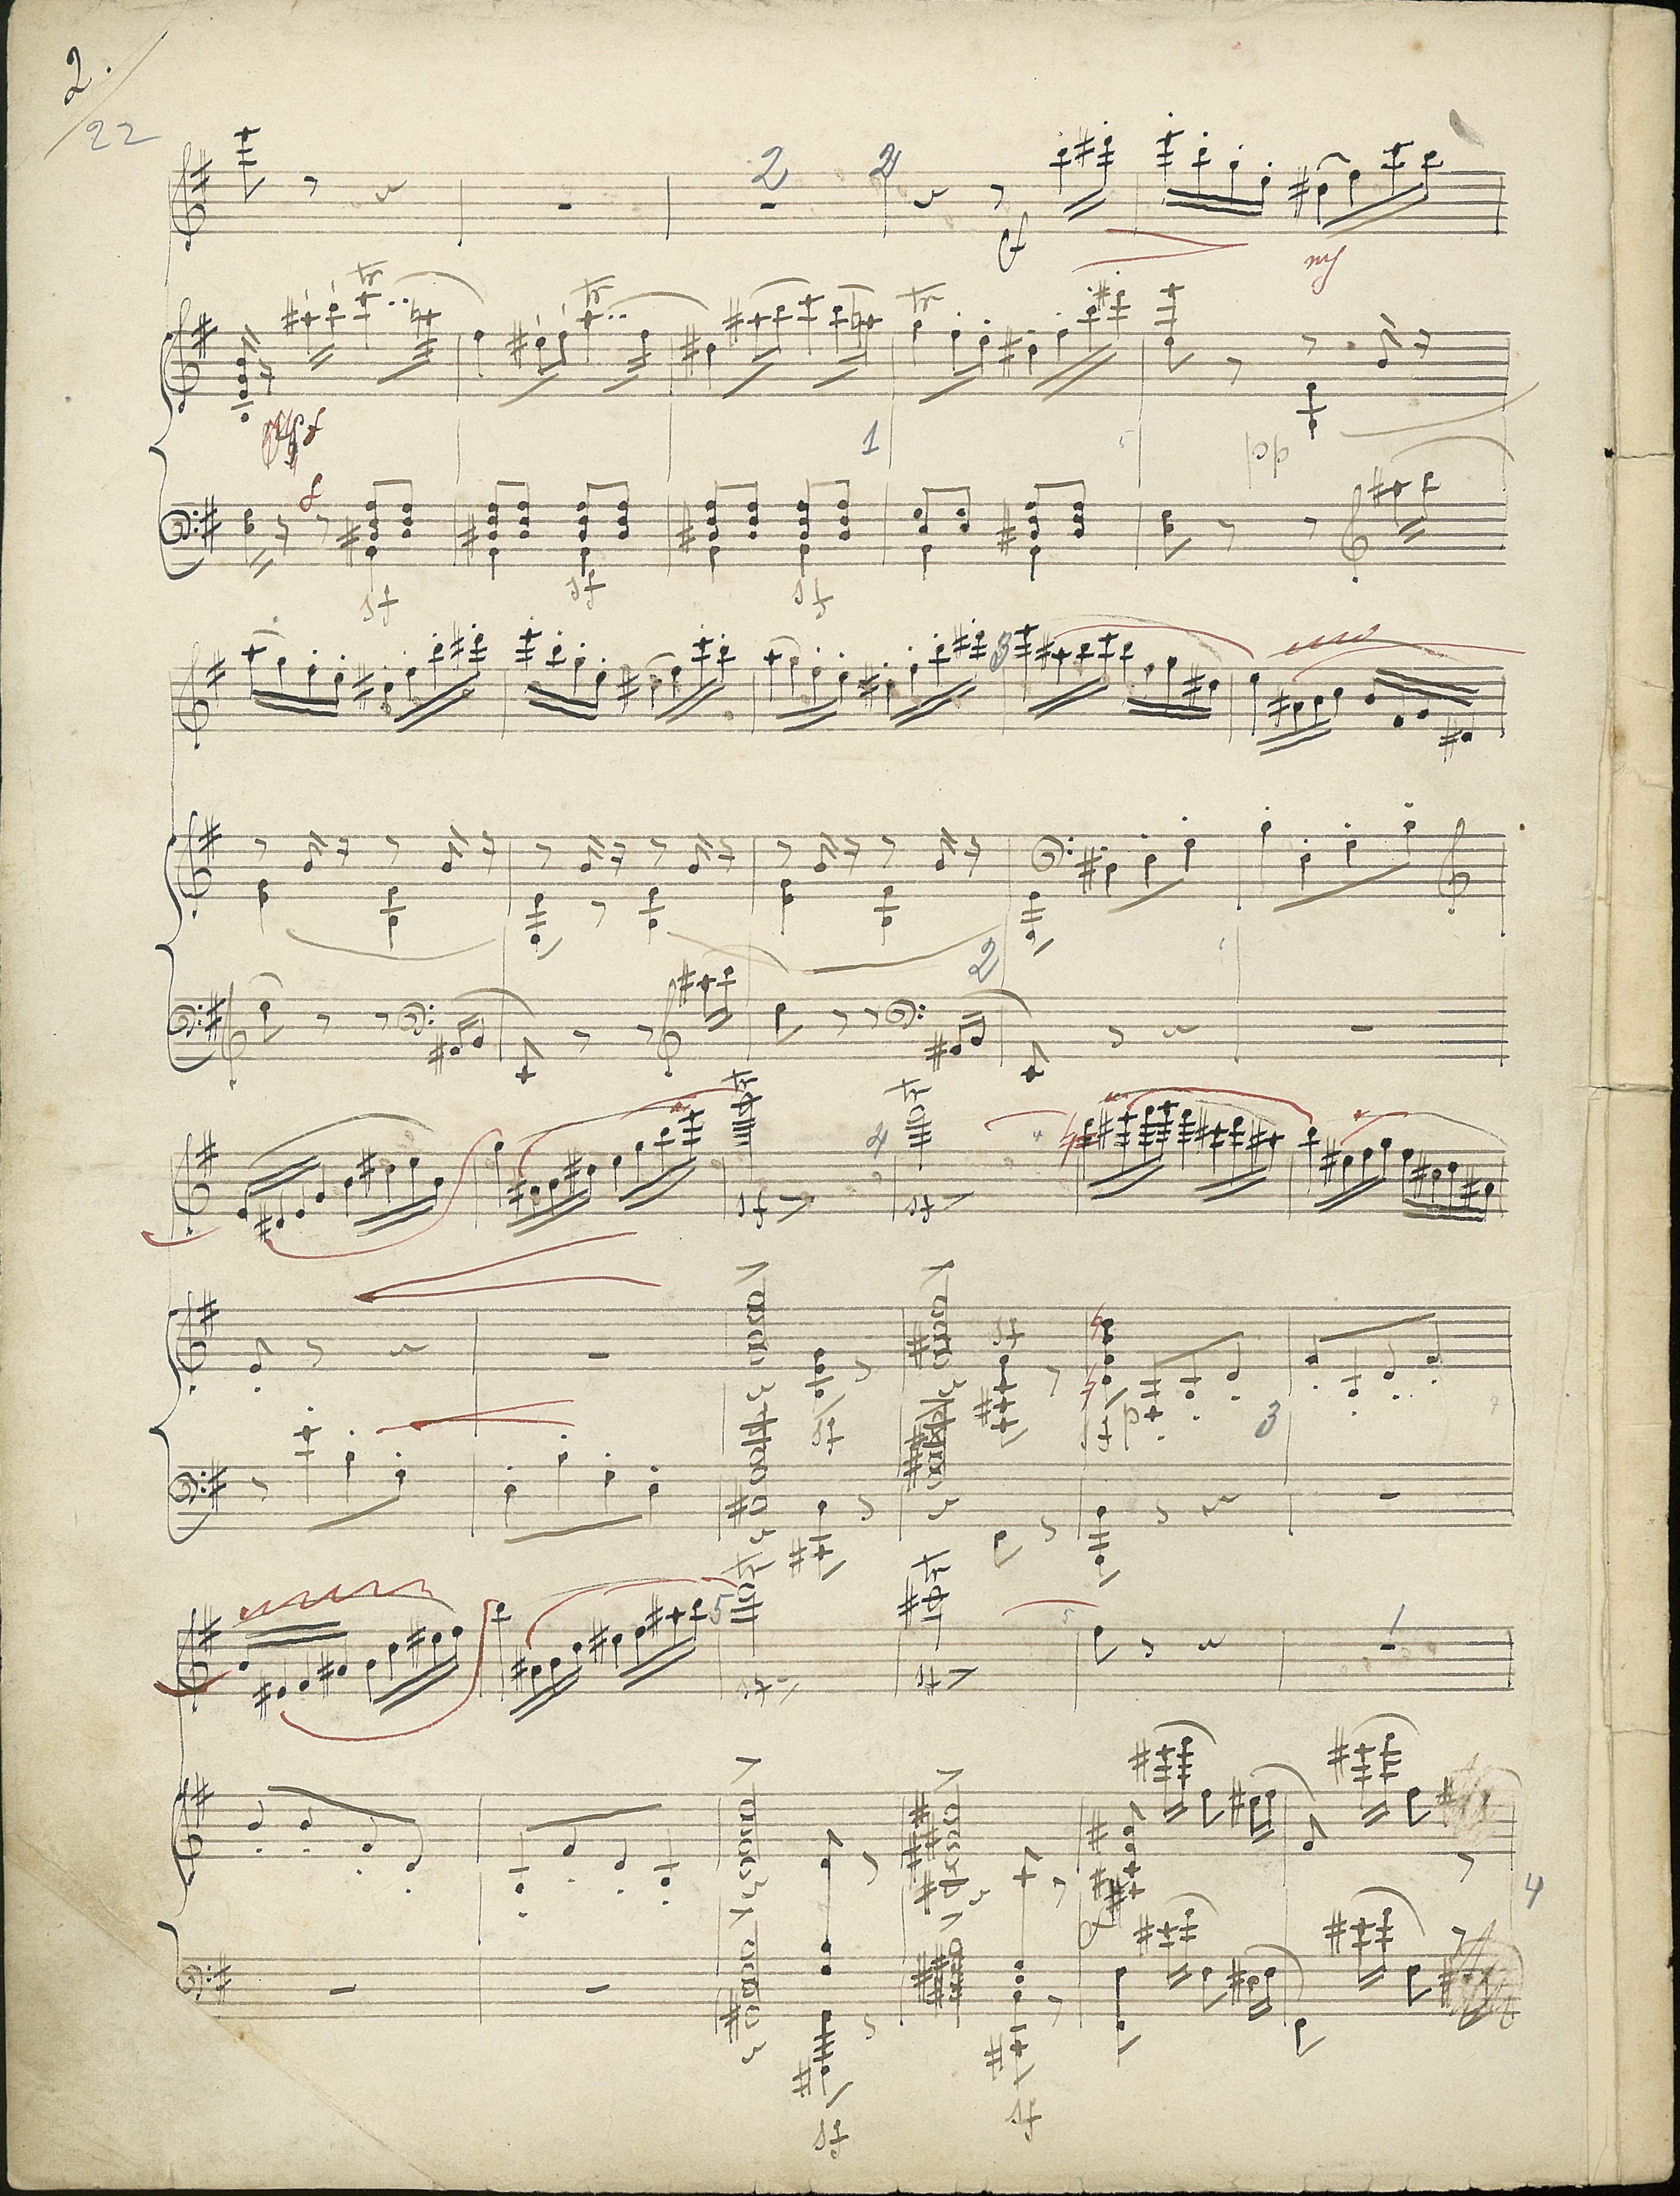 2.
22
2 2
f
mf
tr tr tr
f
1
pp
sf sf sf
3
2
tr tr
4
sf > sf >
> >
sf
sf
sf p
3
tr tr
5
sf > sf >
> >
4
> >
sf sf